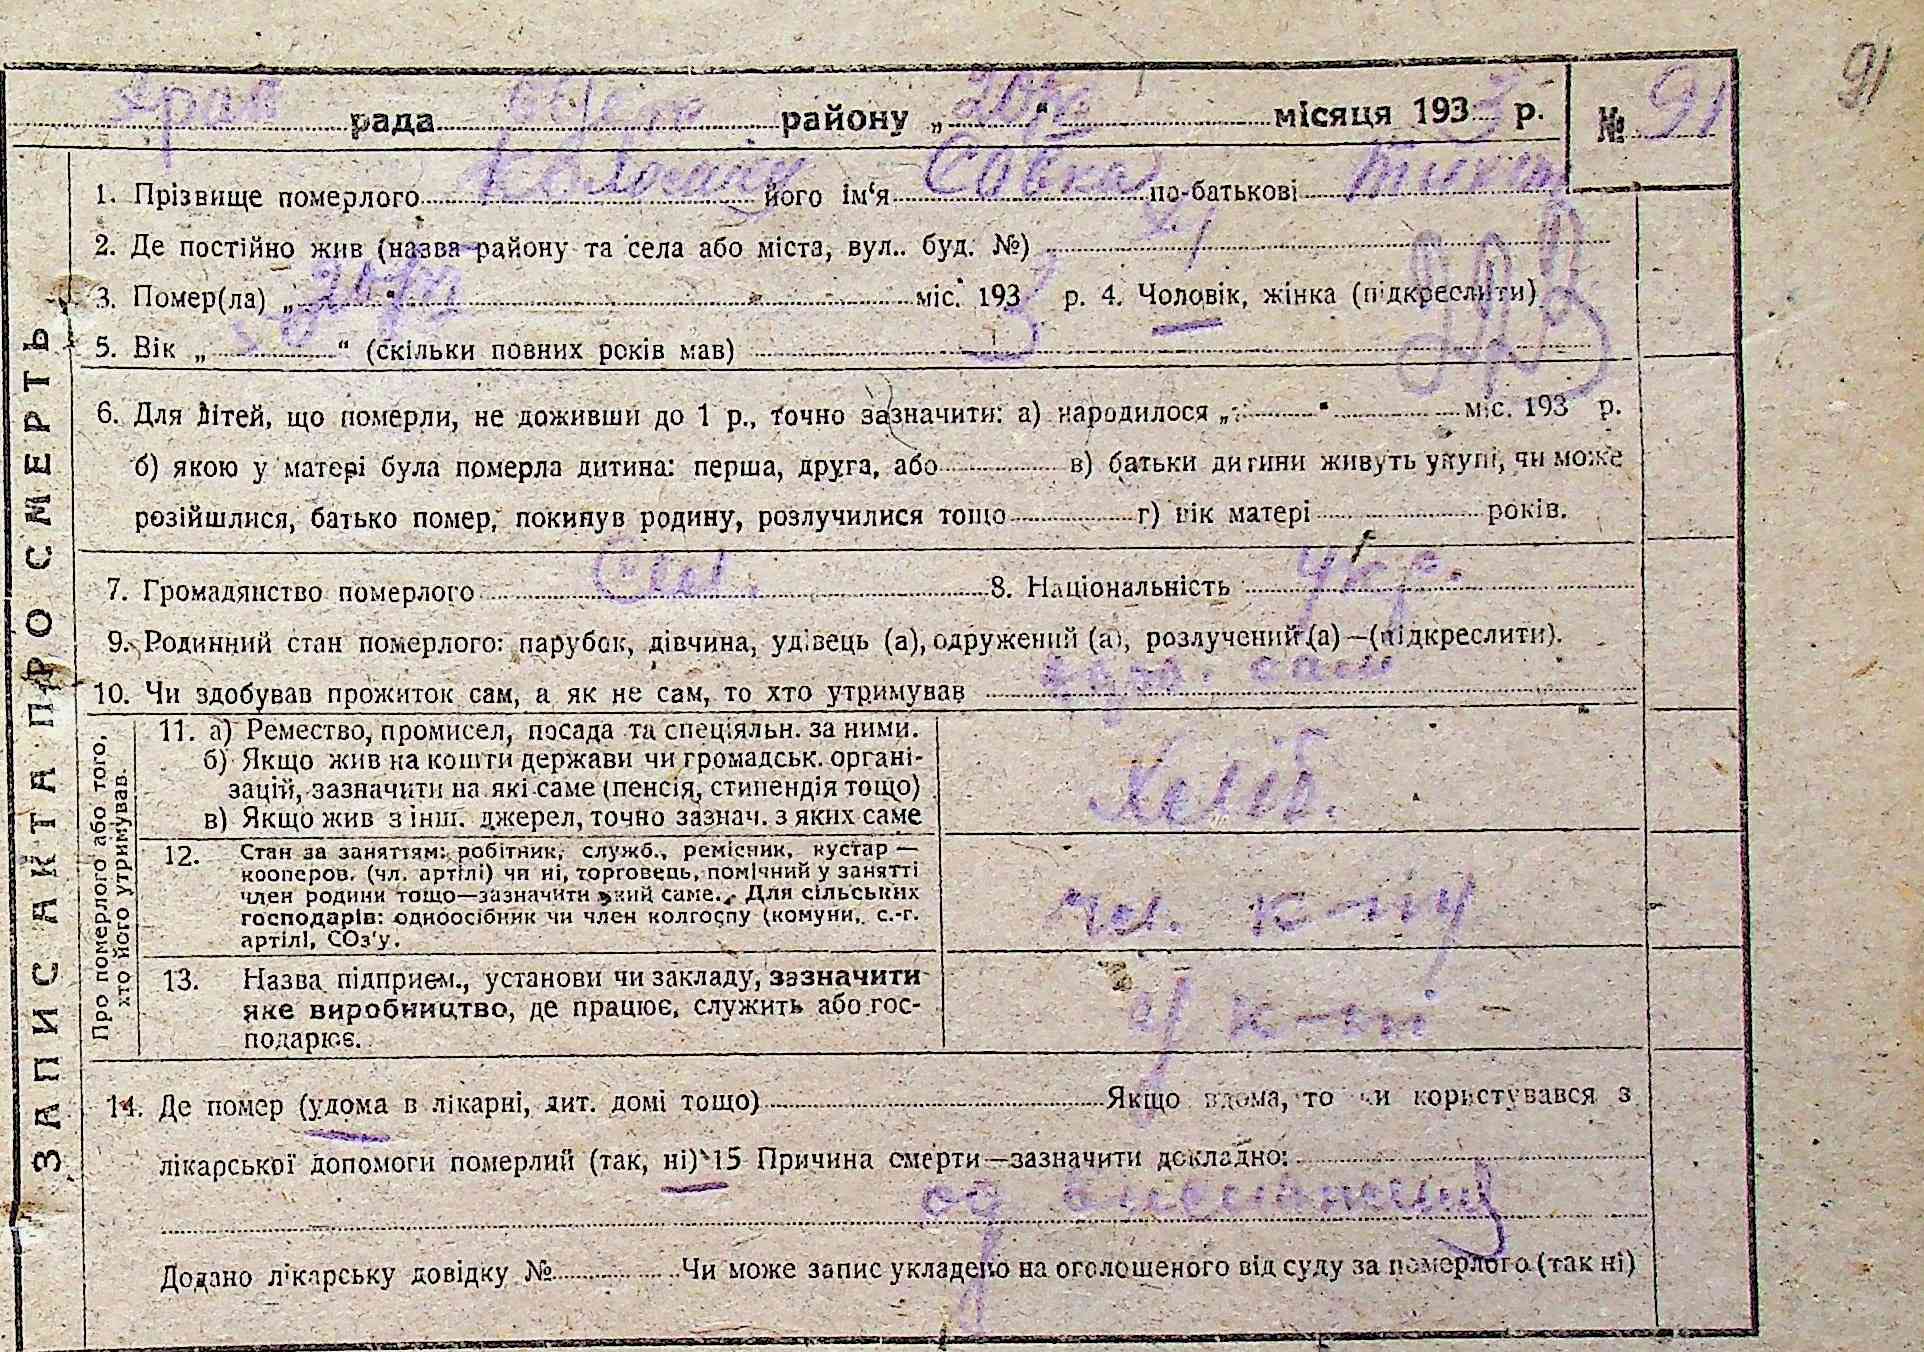 91
рада району „20/IV“ місяця 1933 р. № 91
1. Прізвище померлого його ім‘я Савка по-батькові
2. Де постійно жив (назва району та села або міста, вул.. буд. №)
3. Помер(ла) „20/IV“ міс. 1933 р. 4. Чоловік, жінка (підкреслити)
5. Вік „ “ (скільки повних років мав)
6. Для дітей, що померли, не доживши до 1 р., точно зазначити: а) народилося „ “ міс. 193 р.
б) якою у матері була померла дитина: перша, друга, або в) батьки дитини живуть укупі, чи може
розійшлися, батько помер, покинув родину, розлучилися тощо г) вік матері років.
7. Громадянство померлого 8. Національність Укр.
9. Родинний стан померлого: парубок, дівчина, удівець (а), одружений (а), розлучений (а) —(підкреслити).
10. Чи здобував прожиток сам, а як не сам, то хто утримував сам
ЗАПИС АКТА ПРО СМЕРТЬ
Про померлого або того, хто його утримував.
11. а) Ремество, промисел, посада та спеціяльн. за ними.
б) Якщо жив на кошти держави чи громадськ. органі-
зацій, зазначити на які саме (пенсія, стипендія тощо)
в) Якщо жив з інш. джерел, точно зазнач. з яких саме
Хліб.
12. Стан за заняттям: робітник, служб., ремісник, кустар —
кооперов. (чл. артілі) чи ні, торговець, помічний у занятті
член родини тощо—зазначити який саме. Для сільських
господарів: одноосібник чи член колгоспу (комуни, с.-г.
артілі, СОз'у.
чл. к-пу
13. Назва підприєм., установи чи закладу, зазначити
яке виробництво, де працює, служить або гос-
подарює.
у к-пі
14. Де помер (удома в лікарні, дит. домі тощо) Якщо вдома, то чи користувався з
лікарської допомоги померлий (так, ні) 15 Причина смерти—зазначити докладно:
од
Додано лікарську довідку № Чи може запис укладено на оголошеного від суду за померлого (так ні)